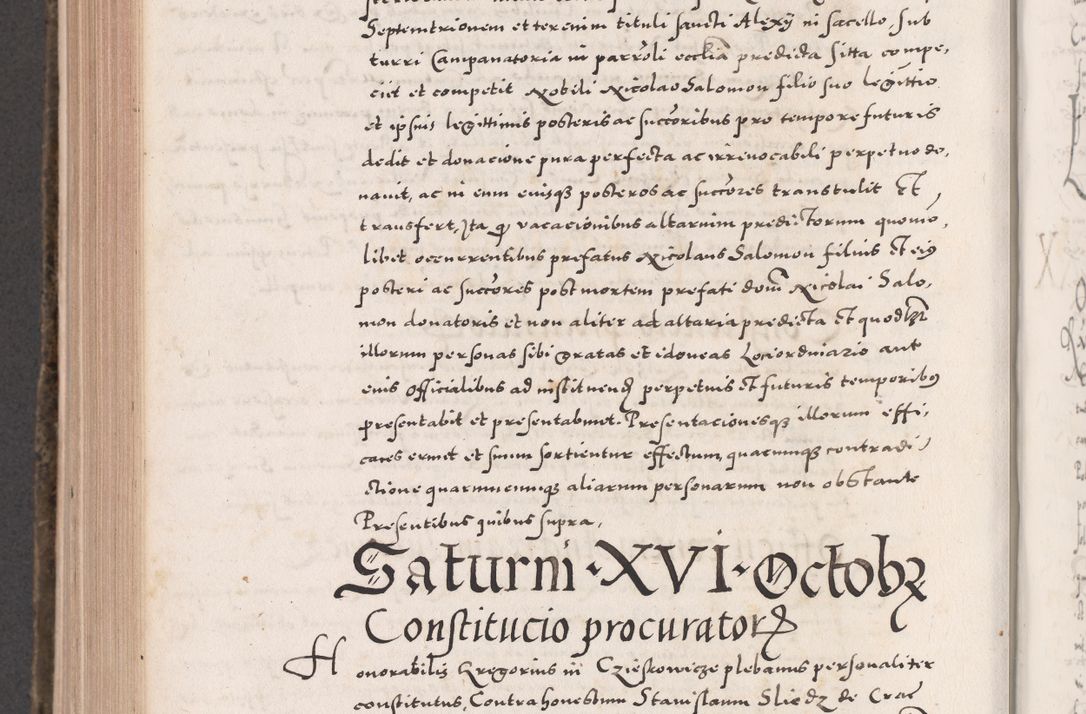 Septemtrionem et terenim tituli sancti Alexy in sacello, sub
turri Campanatoria in parroli eccliã predicta sitta compe,
ciit et competit Nobili Nicolao Salomon filio suo legittio
et ipsius legittimis posteris ac succoribus pro tempore futuris
dedit et donacione pura perfecta ac irrevocabili perpetuo do,
navit, ac in eum eiusqȝ posteros ac succores transtulit Et
transfert, Ita q vacacionibus altarium predictorum quomo,
libet occurrentibus prefatus Nicolaus Salomon filius Et eiꝰ
posteri ac succores post mortem prefati domi Nicolai Salo,
mon donatoris et non aliter ad altaria predicta Et quodlꝫt
illorum personas sibi gratas et idoneas Lociordinario aut
euis Officialibus ad instituendꝭ perpetuis Et futuris temporibꝰ
presentabit et presentabunt. Presentacionesqȝ illorum effi,
caces erunt et suum sortientur effectum, quacumqȝ contradi
ctione quarumcumqȝ aliarum personarum non obstante
Presentibus quibus supra,
Saturni · XVI · Octobꝝ
Constitucio procuratorꝝ
Honorabilis Gregorius in Czieskowicze plebanus personaliter
constitutus, Contra honestum Stanislaum Sliedz de Crac